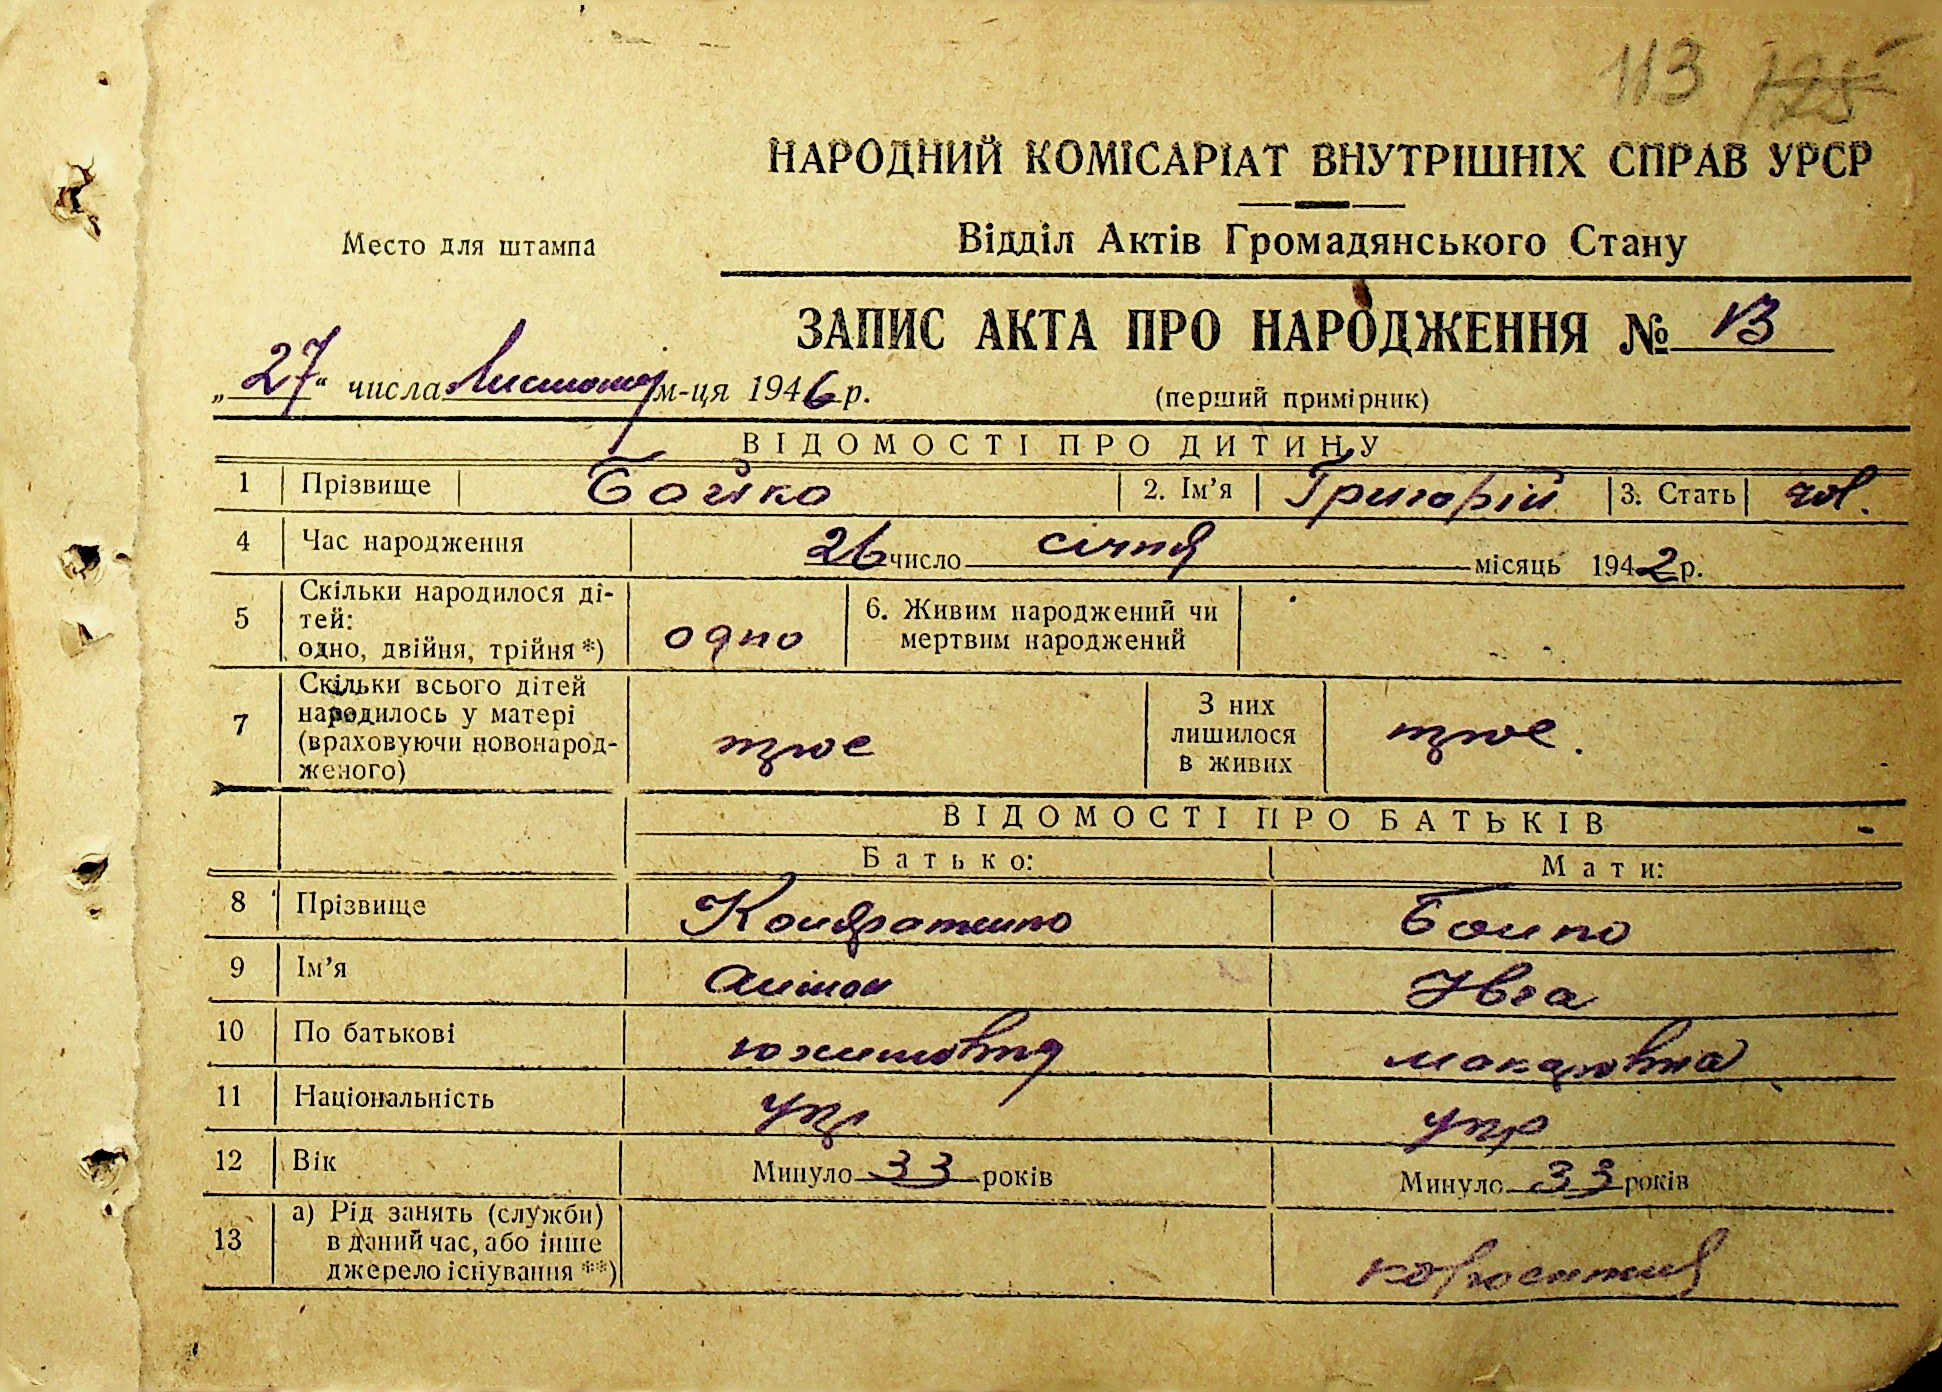 113 125
НАРОДНИЙ КОМІСАРІАТ ВНУТРІШНІХ СПРАВ УРСР
Место для штампа
Відділ Актів Громадянського Стану
ЗАПИС АКТА ПРО НАРОДЖЕННЯ № 13
„27“ числа Листопад м-ця 1946 р.
(перший примірник)
ВІДОМОСТІ ПРО ДИТИНУ
1 Прізвище Бойко 2. Ім’я Григорій 3. Стать чол.
4 Час народження 26 число січня місяць 1942 р.
5 Скільки народилося ді-
тей:
одно, двійня, трійня *) одно
6. Живим народжений чи
мертвим народжений
7 Скільки всього дітей
народилось у матері
(враховуючи новонарод-
женого) троє
З них
лишилося
в живих троє.
ВІДОМОСТІ ПРО БАТЬКІВ
Батько: Мати:
8 Прізвище Кондратенко Бойко
9 Ім’я Антон Ївга
10 По батькові макаровна
11 Національність укр укр
12 Вік Минуло 33 років Минуло 33 років
13 а) Рід занять (служби)
в даний час, або інше
джерело існування **)